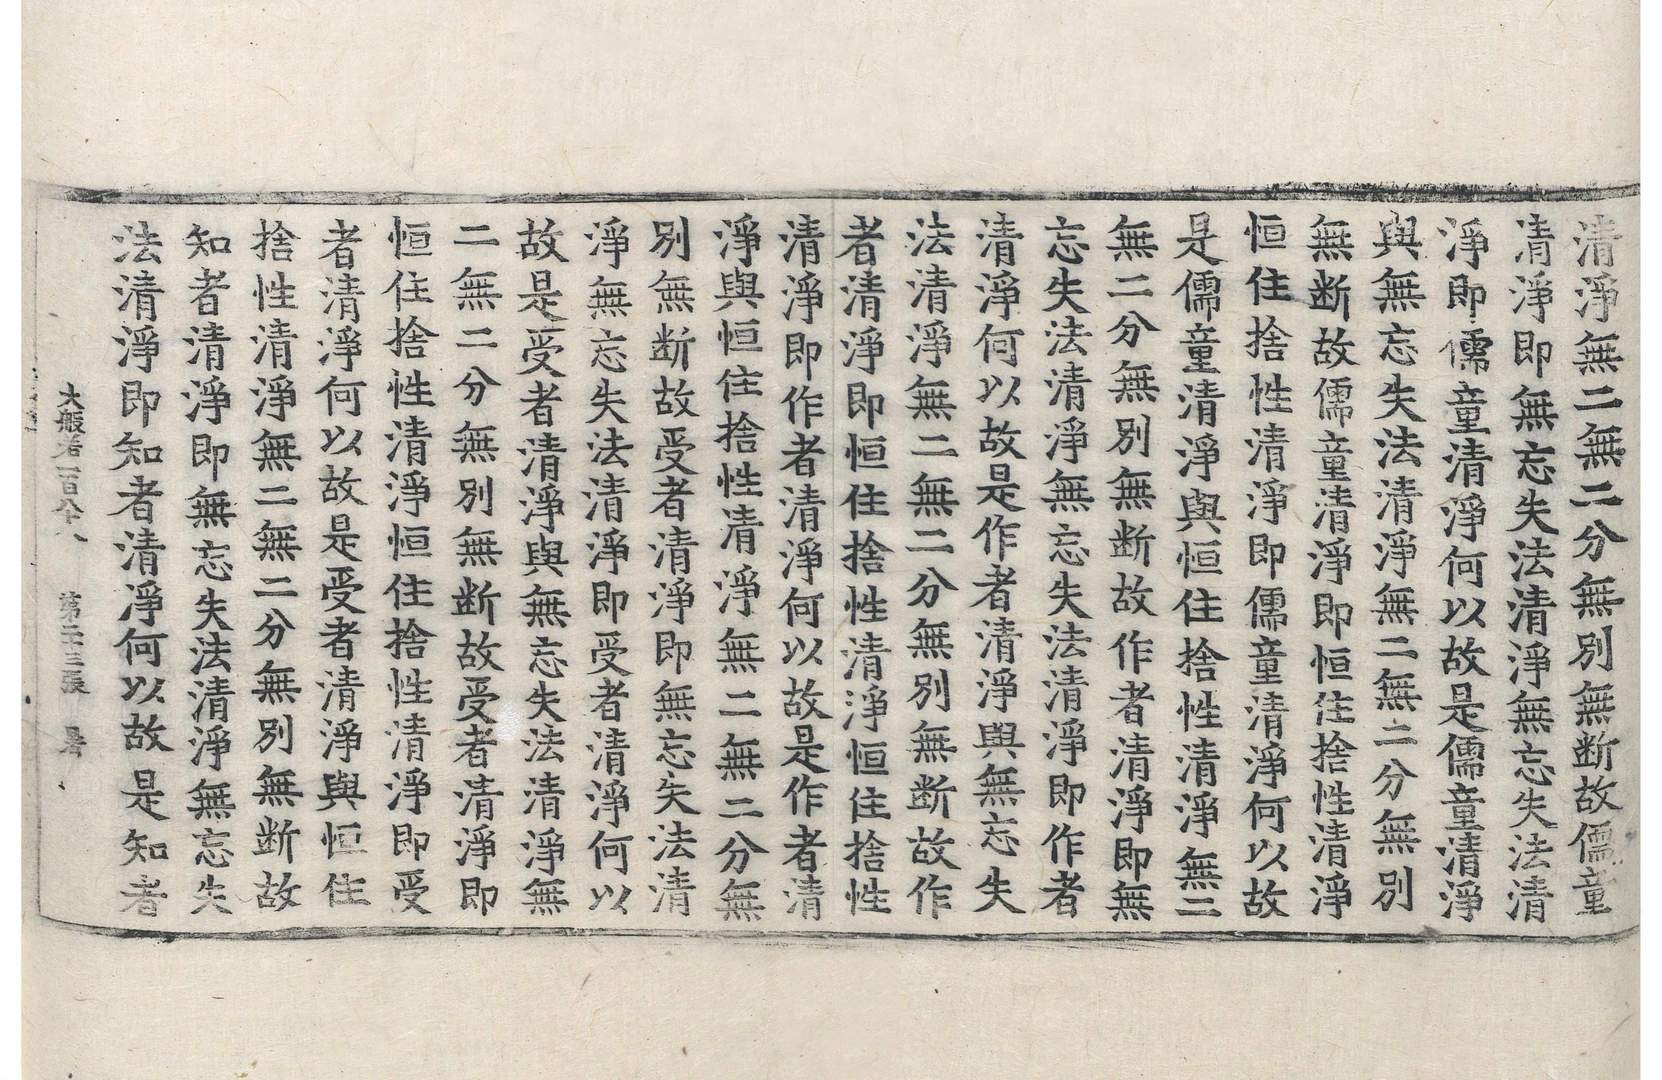 清淨無二無二分無別無断故儒童
清淨即無忘失法清淨無忘失法清
淨即儒童清淨何以故是儒童清淨
與無忘失法清淨無二無二分無別
無断故儒童清淨即恒住捨性清淨
恒住捨性清淨即儒童清淨何以故
是儒童清淨與恒住捨性清淨無二
無二分無別無断故作者清淨即無
忘失法清淨無忘失法清淨即作者
清淨何以故是作者清淨與無忘失
法清淨無二無二分無別無断故作
者清淨即恒住捨性清淨恒住捨性
清淨即作者清淨何以故是作者清
淨與恒住捨性清淨無二無二分無
別無断故受者清淨即無忘失法清
淨無忘失法清淨即受者清淨何以
故是受者清淨與無忘失法清淨無
二無二分無別無断故受者清淨即
恒住捨性清淨恒住捨性清淨即受
者清淨何以故是受者清淨與恒住
捨性清淨無二無二分無別無断故
知者清淨即無忘失法清淨無忘失
法清淨即知者清淨何以故是知者
大般若一百八十八 第二十三張 暑